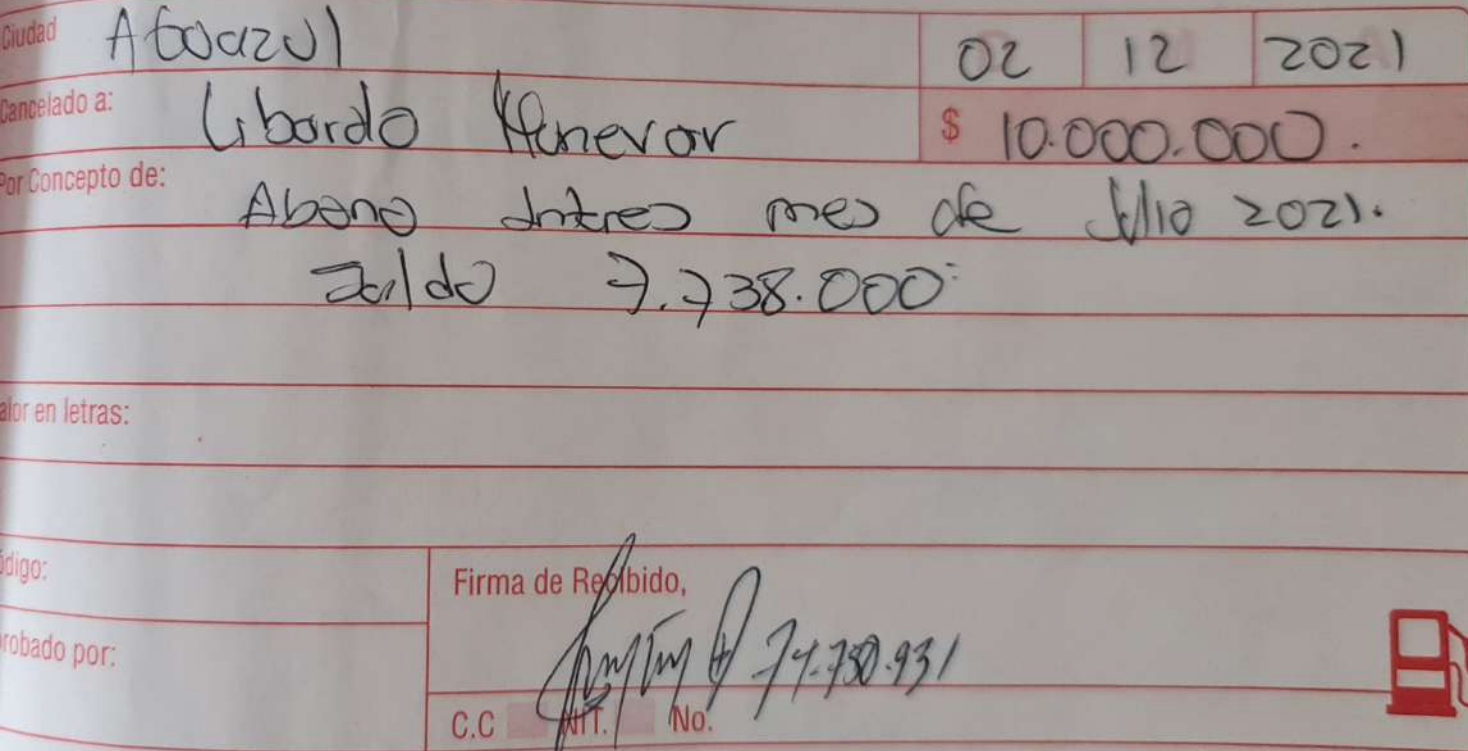 Ciudad Aguazul 02 12 2021
Cancelado a: Libardo $ 10.000.000.
Por Concepto de: Abono Intres mes de Julio 2021.
Saldo 7.738.000
alor en letras:
ódigo:
Firma de Recibido,
robado por:
C.C NIT. No.